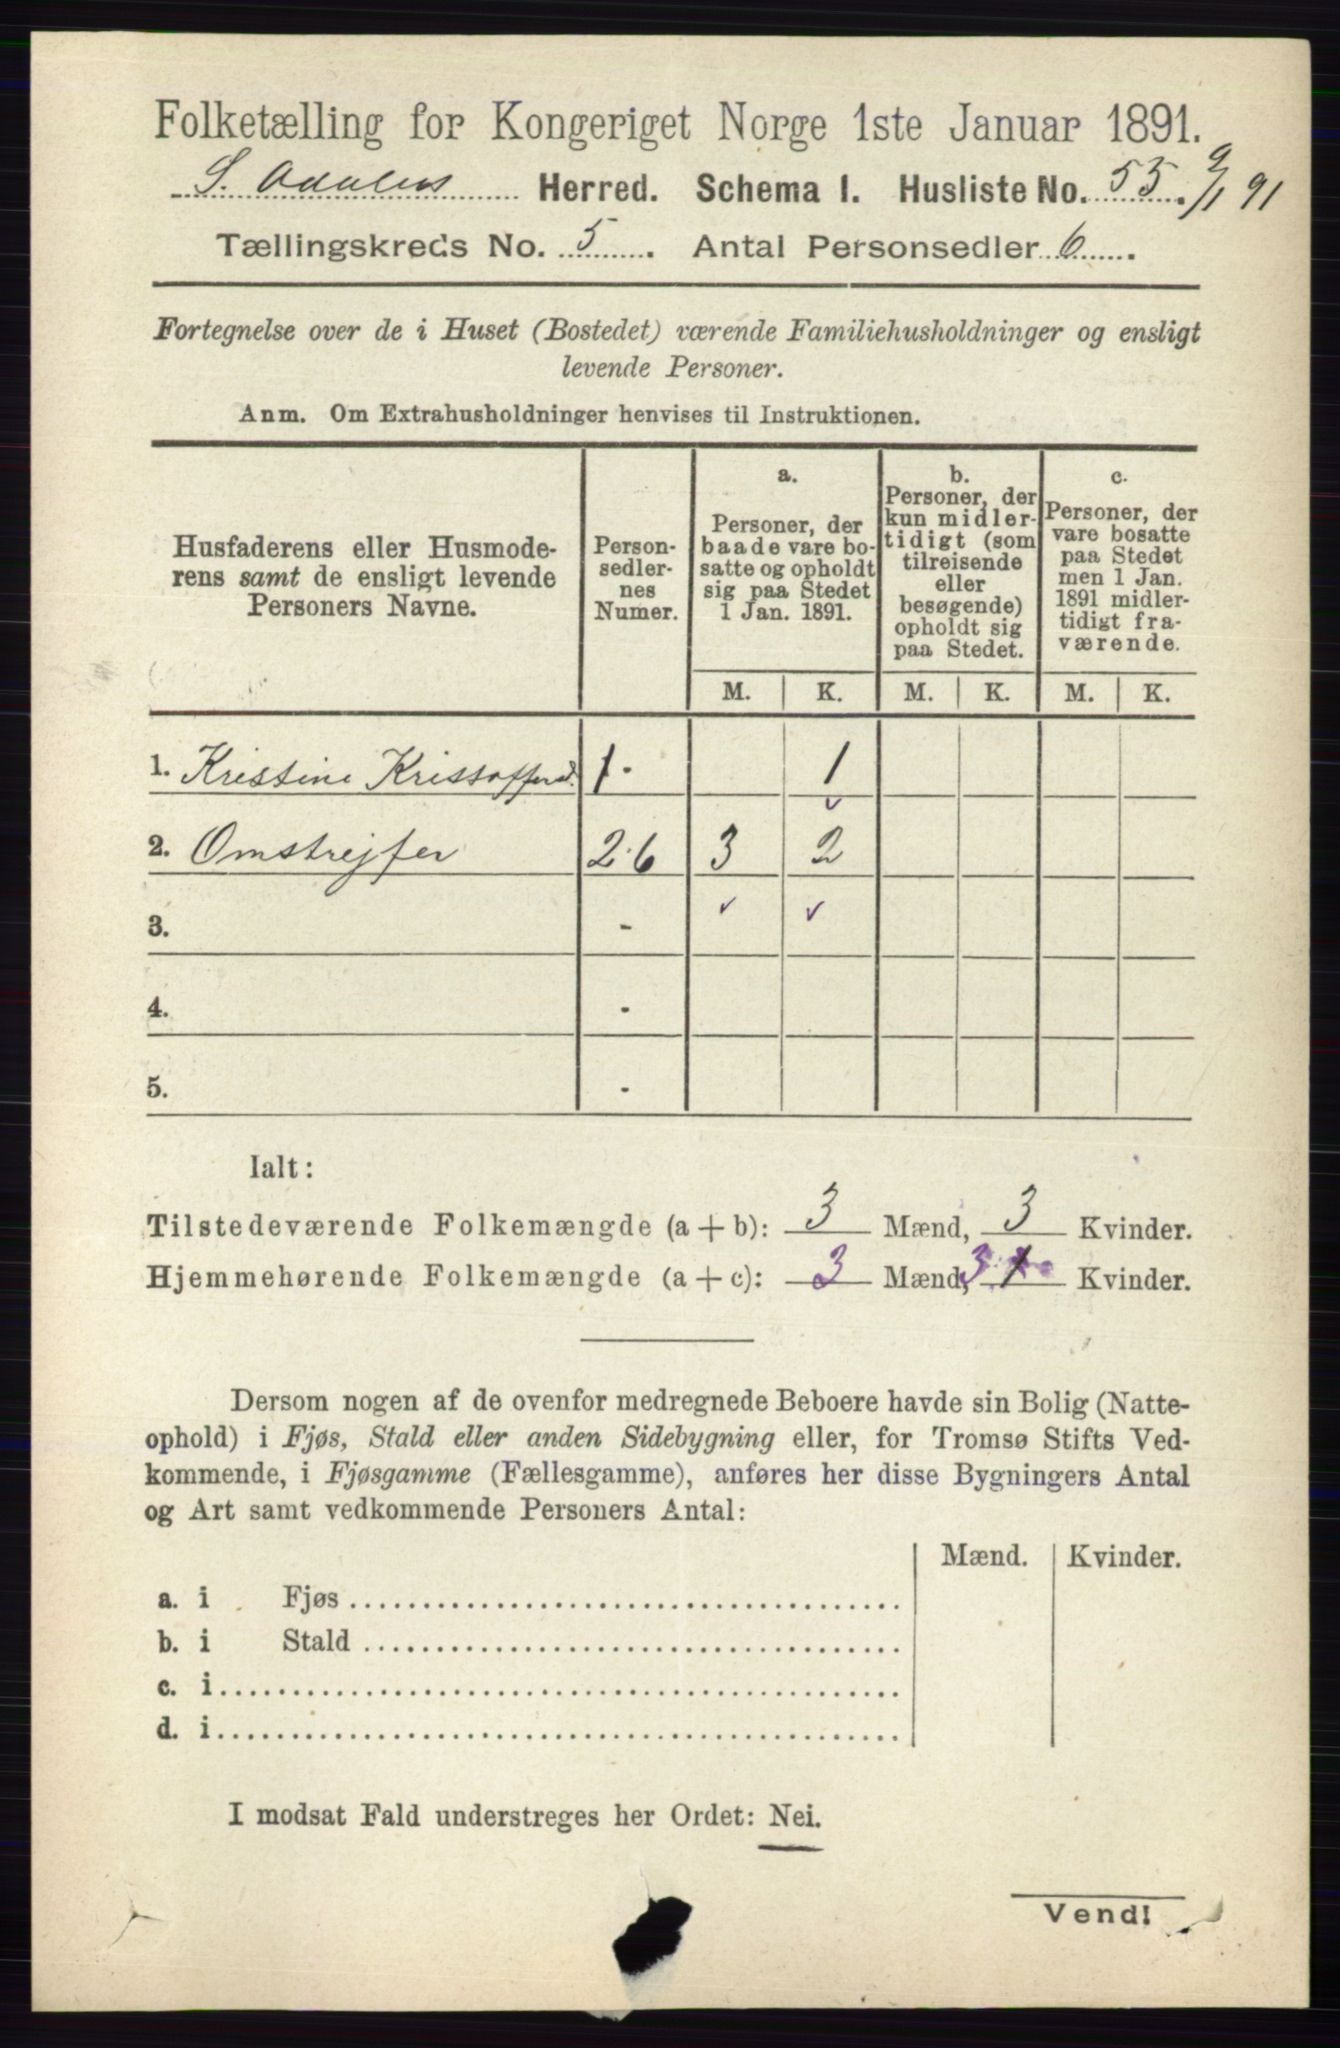 Folketælling for Kongeriget Norge 1ste Januar 1891.
S. Odalens Herred. Schema 1. Husliste No. 55. 9/1 91
Tællingskreds No. 5. Antal Personsedler 6.
Fortegnelse over de i Huset (Bostedet) værende Familiehusholdninger og ensligt
levende Personer.
Anm. Om Extrahusholdninger henvises til Instruktionen.
Husfaderens eller Husmode-
rens samt de ensligt levende
Personers Navne.
Person-
sedler-
nes
Numer.
a.
Personer, der
baade vare bo-
satte og opholdt
sig paa Stedet
1 Jan. 1891.
b.
Personer, der
kun midler-
tidigt (som
tilreisende
eller
besøgende)
opholdt sig
paa Stedet.
c.
Personer, der
vare bosatte
paa Stedet
men 1 Jan.
1891 midler-
tidigt fra-
værende.
M. K. M. K. M. K.
1. Kristine Kristoffersd. 1 - 1
2. Omstrejfer 2-6 3 2
3. -
4. -
5. -
Ialt:
Tilstedeværende Folkemængde (a + b): 3 Mænd, 3 Kvinder.
Hjemmehørende Folkemængde (a + c): 3 Mænd, 3 1 Kvinder.
Dersom nogen af de ovenfor medregnede Beboere havde sin Bolig (Natte-
ophold) i Fjøs, Stald eller anden Sidebygning eller, for Tromsø Stifts Ved-
kommende, i Fjøsgamme (Fællesgamme), anføres her disse Bygningers Antal
og Art samt vedkommende Personers Antal:
Mænd. Kvinder.
a. i Fjøs
b. i Stald
c. i
d. i
I modsat Fald understreges her Ordet: Nei.
Vend!